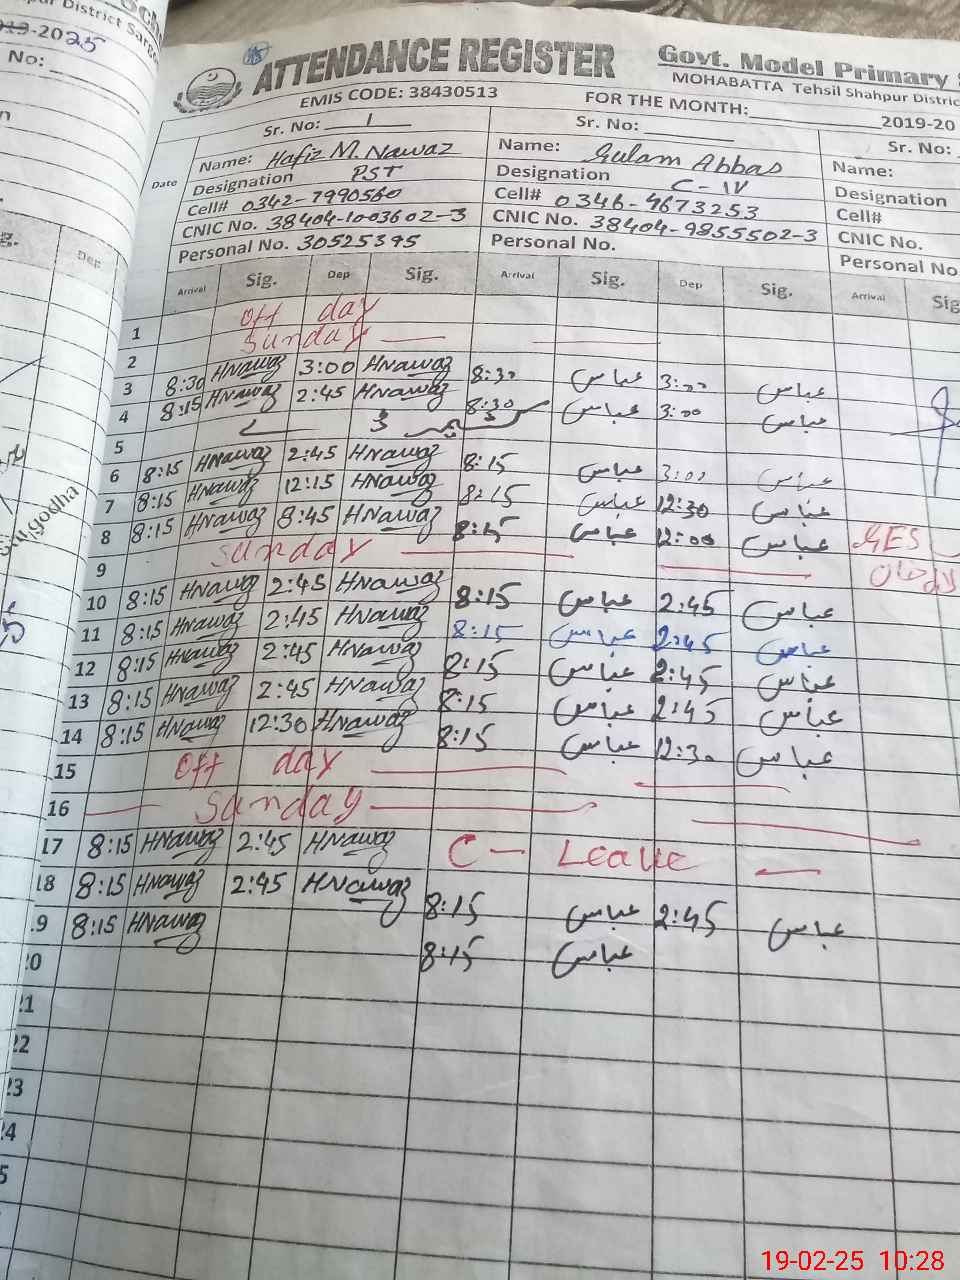 2019-2025
No:
ATTENDANCE REGISTER
Govt. Model Primary
EMIS CODE: 38430513
MOHABATTA Tehsil Shahpur District
FOR THE MONTH: 2019-20
Sr. No: 1 Sr. No: Sr. No:
Date
Name: Hafiz M. Nawaz Name: Gulam Abbas Name:
Designation PST Designation C-IV Designation
Cell# 0342-7990560 Cell# 0346-4673253 Cell#
CNIC No. 38404-1003602-3 CNIC No. 38404-9855502-3 CNIC No.
Personal No. 30525395 Personal No. Personal No.
Arrival Sig. Dep Sig. Arrival Sig. Dep Sig. Arrival Sig
1 Off day
2 Sunday
3 8:30 HNawaz 3:00 HNawaz 8:30 عباس 3:00 عباس
4 8:15 HNawaz 2:45 HNawaz 8:30 عباس 3:00 عباس
5 کشمیر ڈے
6 8:15 HNawaz 2:45 HNawaz 8:15 عباس 3:00 عباس
7 8:15 HNawaz 12:15 HNawaz 8:15 عباس 12:30 عباس
8 8:15 HNawaz 9:45 HNawaz 8:15 عباس 12:00 عباس
9 Sunday
10 8:15 HNawaz 2:45 HNawaz 8:15 عباس 2:45 عباس
11 8:15 HNawaz 2:45 HNawaz 8:15 عباس 2:45 عباس
12 8:15 HNawaz 2:45 HNawaz 8:15 عباس 2:45 عباس
13 8:15 HNawaz 2:45 HNawaz 8:15 عباس 2:45 عباس
14 8:15 HNawaz 12:30 HNawaz 8:15 عباس 12:30 عباس
15 Off day
16 Sunday
17 8:15 HNawaz 2:45 HNawaz C - Leave
18 8:15 HNawaz 2:45 HNawaz 8:15 عباس 2:45 عباس
19 8:15 HNawaz 8:15 عباس
20
21
22
23
24
19-02-25 10:28